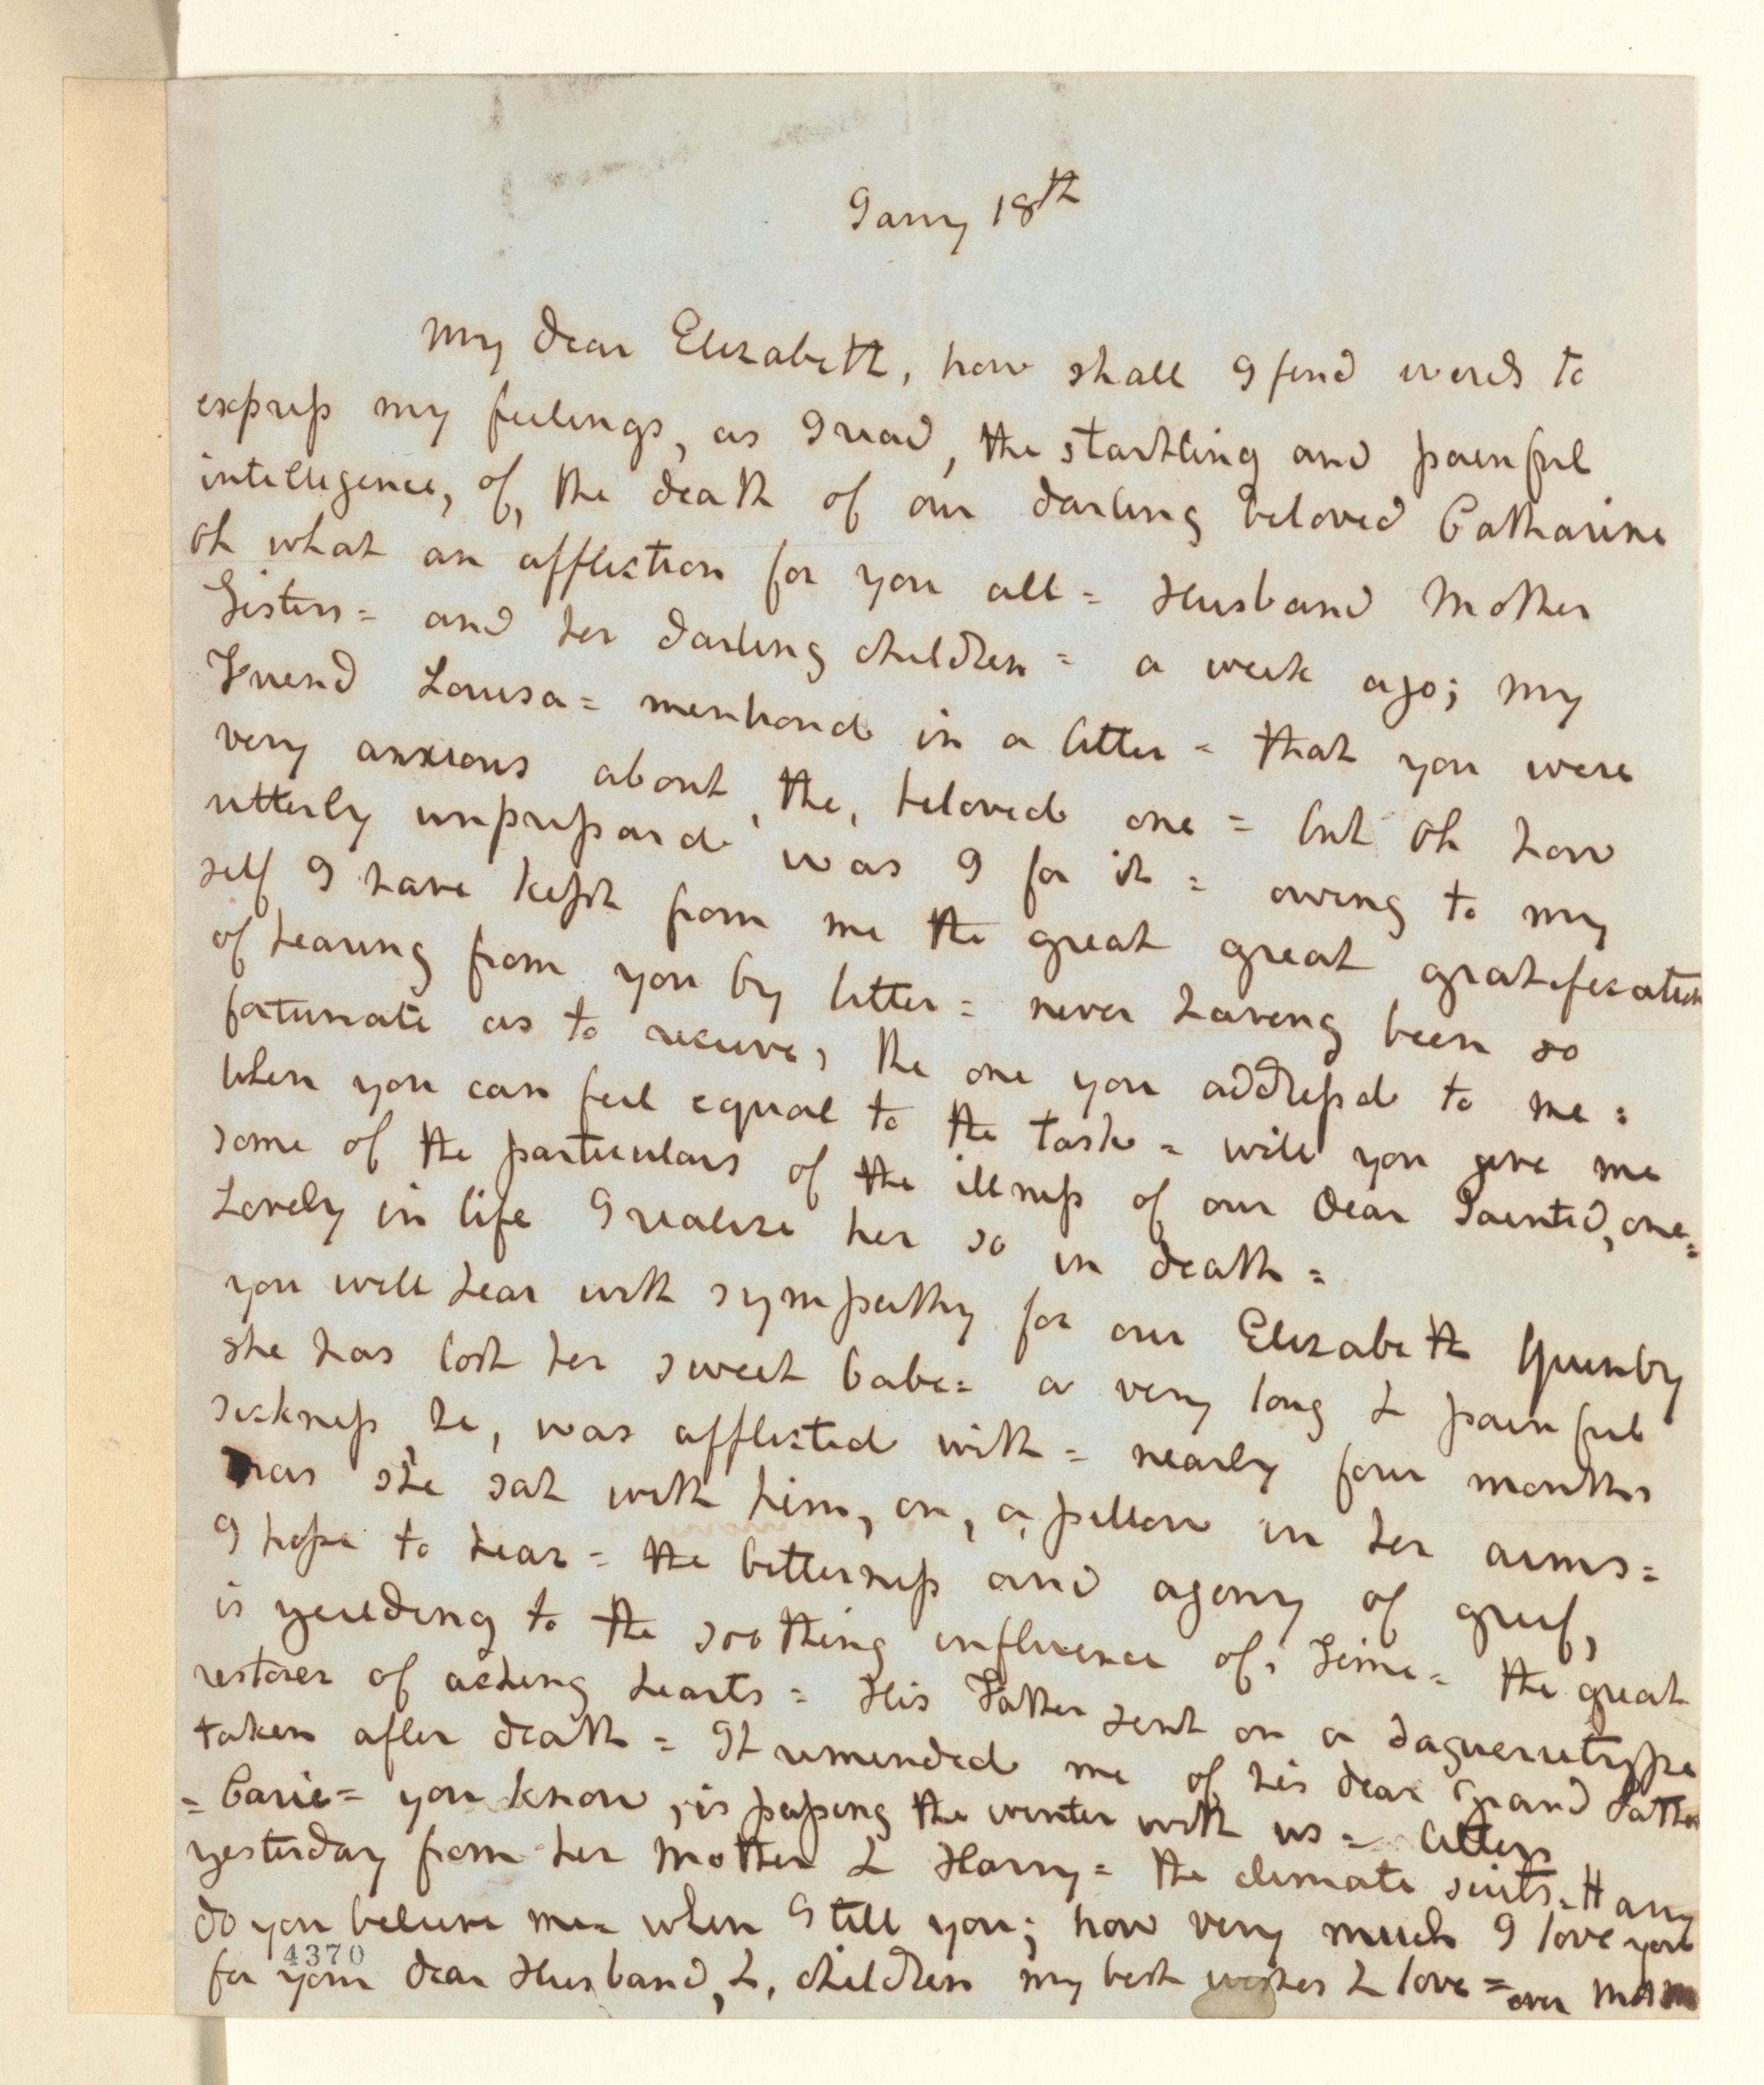 Jany 18th
My dear Elizabeth, how shall I find words to
express my feelings, as I read, the startling and painful
intelligence, of, the death of our darling beloved Catharine
Oh what an affliction for you all = Husband Mother
Sisters = and her darling children = a week ago; my
Friend Louisa = mentiond in a letter = that you were
very anxious about, the, beloved one = but Oh how
utterly unprepard was I for it = owing to my
self I have kept from me the great great gratification
of hearing from you by letter = never having been so
fortunate as to receive, the one you addressd to me =
When you can feel equal to the task = will you give me
some of the particulars of the illness of our dear Sainted, one =
Lovely in life I realize her so in death =
you will hear with sympathy for our Elizabeth Quinby
she has lost her sweet babe = a very long & painful
sickness he, was afflicted with = nearly four months
has she sat with him, on, a pillow in her arms =
I hope to hear = the bitterness and agony of grief,
is yeilding to the soothing influence of, Time = the great
restorer of acheing hearts = His Father sent on a daguerretype
taken after death = It reminded me of his dear Grand Father
= Carie = you know, is passing the winter with us = letters
yesterday from her Mother & Harry = the climate suits = Harry
do you believe me = when I tell you; how very much I love you
for your dear Husband, &, children my best wishes & love = over MAM
4370